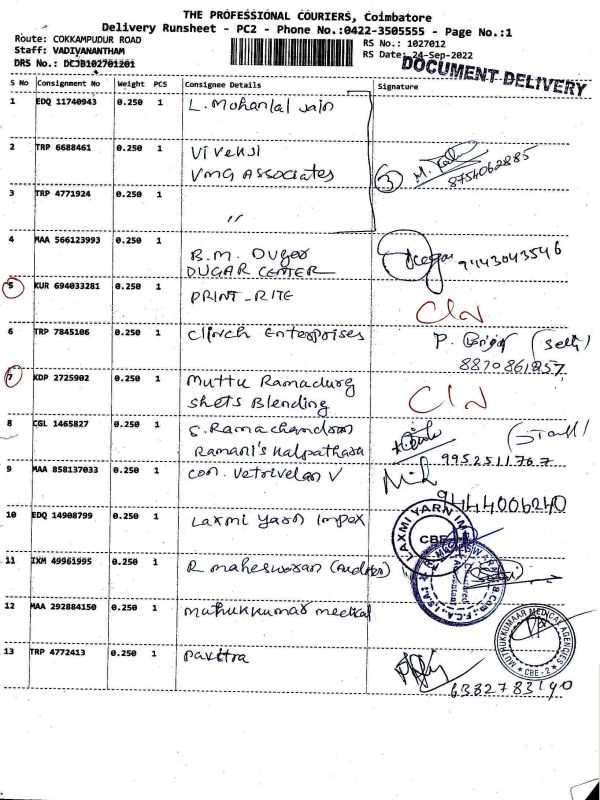 THE PROFESSIONAL COURIERS, Coimbatore
Delivery Runsheet - PC2 - Phone No.:0422-3505555 - Page No.:1
Route: COKKAMPUDUR ROAD
Staff: VADIVANANTHAM
DRS No.: DCJB102701201
RS No.: 1027012
RS Date: 24-Sep-2022
DOCUMENT DELIVERY
S No Consignment No Weight PCS Consignee Details Signature
1 EDQ 11740943 0.250 1 L. Mohanlal Jain
2 TRP 6688461 0.250 1 Vivekji
VMG ASSOCIATES
3 M. 8754062885
3 TRP 4771924 0.250 1 "
4 MAA 566123993 0.250 1 B.M. Dugar
DUGAR CENTER
9443043546
5 KUR 694033281 0.250 1 PRINT-RITE
6 TRP 7845106 0.250 1 Clinch Enterprises P.
8870861857
7 KDP 2725902 0.250 1 Muttu
Blending
8 CGL 1465827 0.250 1 S. Ramachandran
Ramani's Kalpatharu
9952511767
9 MAA 858137033 0.250 1 Con. Vetrivelan V
9444006240
10 EDQ 14908799 0.250 1 Laxmi Yarn Impex
LAXMI YARN IM
CBE
11 IXM 49961995 0.250 1 R maheswaran (Auditor)
12 MAA 292884150 0.250 1 muthukkumar medical
MUTHUKKUMAAR MEDICAL AGENCIES
CBE - 2
13 TRP 4772413 0.250 1 Pavitra
6382783190